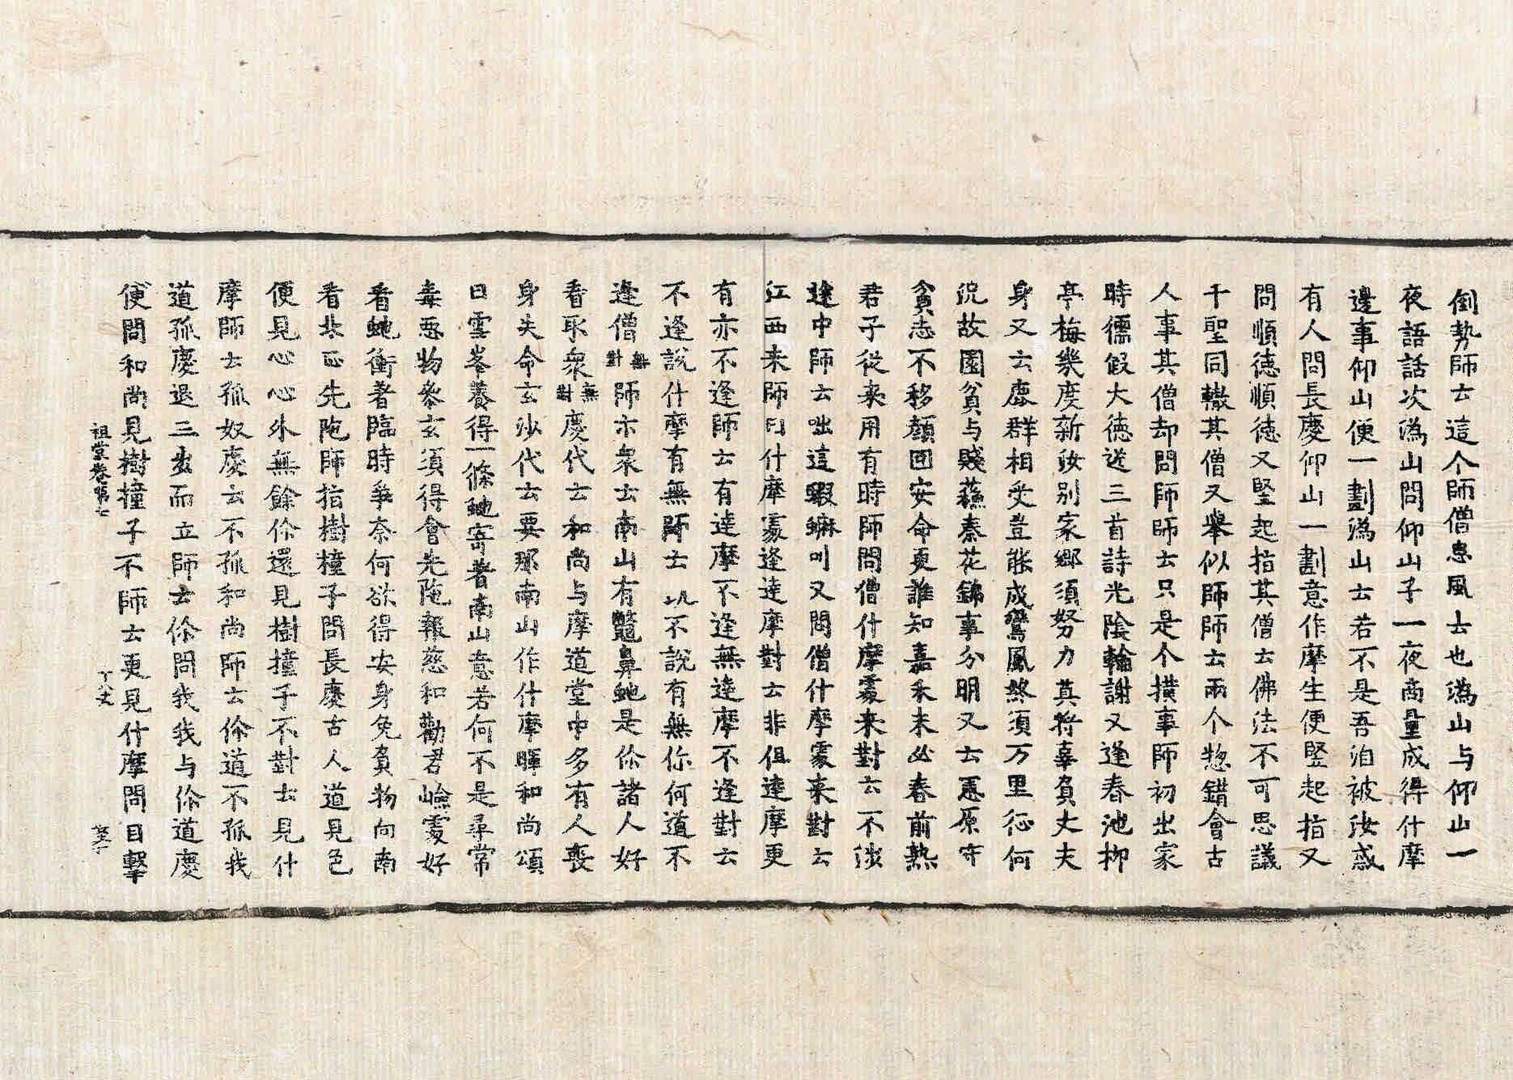 倒勢師云這个師僧患風去也溈山与仰山一
夜語話次溈山問仰山子一夜商量成得什摩
邊事仰山便一劃溈山云若不是吾洎被汝惑
有人問長慶仰山一劃意作摩生便竪起指又
問順德順德又竪起指其僧云佛法不可思議
千聖同轍其僧又舉似師師云兩个惣錯會古
人事其僧却問師師云只是个橫事師初出家
時儒假大德送三首詩光陰輪謝又逢春池柳
亭梅幾度新汝別家鄉須努力莫將辜負丈夫
身又云鹿群相受豈能成鸞鳳終須万里征何
況故園貧与賤蘇秦花錦事分明又云原憲守
貧志不移顏回安命更誰知嘉禾未必春前熟
君子從來用有時師問僧什摩處來對云不涉
途中師云咄這蝦䗫叫又問僧什摩處來對云
江西來師曰什摩處逢達摩對云非但達摩更
有亦不逢師云有達摩不逢無達摩不逢對云
不逢說什摩有無師云既不說有無你何道不
逢僧無對師示眾云南山有鼈鼻虵是你諸人好
看取眾無對慶代云和尚与摩道堂中多有人喪
身失命玄沙代云要那南山作什摩暉和尚頌
曰雪峯養得一條虵寄著南山意若何不是尋常
毒惡物參玄須得會先陁報慈和勸君嶮處好
看虵衝著臨時爭奈何欲得安身免負物向南
看北正先陁師指樹橦子問長慶古人道見色
便見心心外無餘你還見樹橦子不對云見什
摩師云孤奴慶云不孤和尚師云你道不孤我
道孤慶退三步而立師云你問我我与你道慶
便問和尚見樹橦子不師云更見什摩問目擊
祖堂卷第七